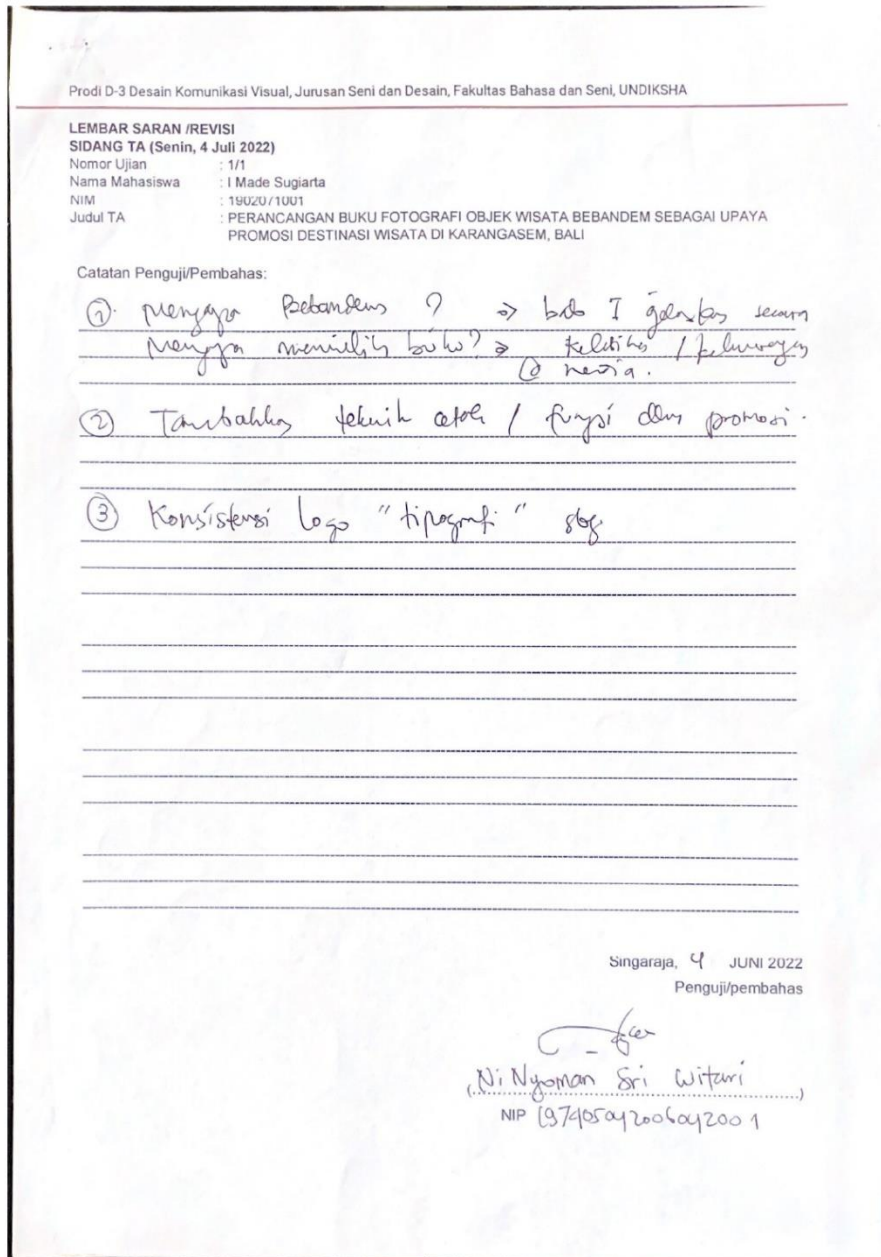 Prodi D-3 Desain Komunikasi Visual, Jurusan Seni dan Desain, Fakultas Bahasa dan Seni, UNDIKSHA
LEMBAR SARAN /REVISI
SIDANG TA (Senin, 4 Juli 2022)
Nomor Ujian : 1/1
Nama Mahasiswa : I Made Sugiarta
NIM : 1902071001
Judul TA : PERANCANGAN BUKU FOTOGRAFI OBJEK WISATA BEBANDEM SEBAGAI UPAYA
PROMOSI DESTINASI WISATA DI KARANGASEM, BALI
Catatan Penguji/Pembahas:
① Mengapa Bebandem ? => bab I secara
Mengapa memilih buku? =>
② Tambahkan teknik cetak / fungsi dlm promosi.
③ Konsistensi logo "tipografi" sbg.
Singaraja, 4 JUNI 2022
Penguji/pembahas
(Ni Nyoman Sri Witari)
NIP